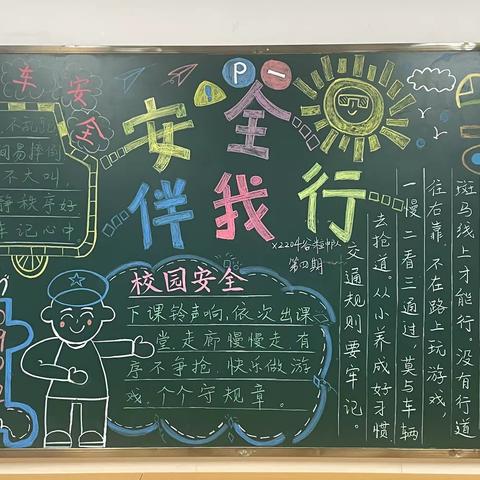 车安全
间易摔倒
不大叫,
静秩序好
车记心中
P
安全
伴我行
X2204谷粒中队
第四期
校园安全
下课铃声响,依次出课
堂,走廊慢慢走,有
序不争抢,快乐做游
戏,个个守规章。
斑马线上才能行。没有行道
往右靠,不在路上玩游戏,
一慢二看三通过,莫与车辆
去抢道。从小养成好习惯
交通规则要牢记。